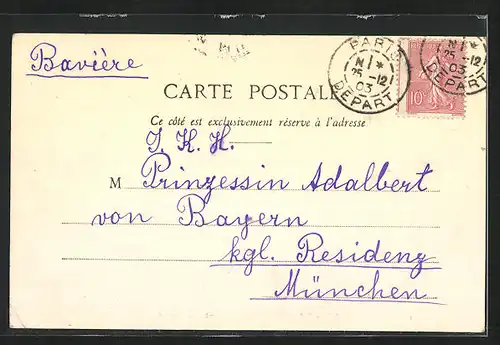 Bavière
PARIS
N 1 *
25 -12
03
DEPART
10
25 -12
03
DEPART
CARTE POSTALE
Ce côté est exclusivement réservé à l'adresse
I. K. H.
M Prinzessin Adalbert
von Bayern
kgl. Residenz
München